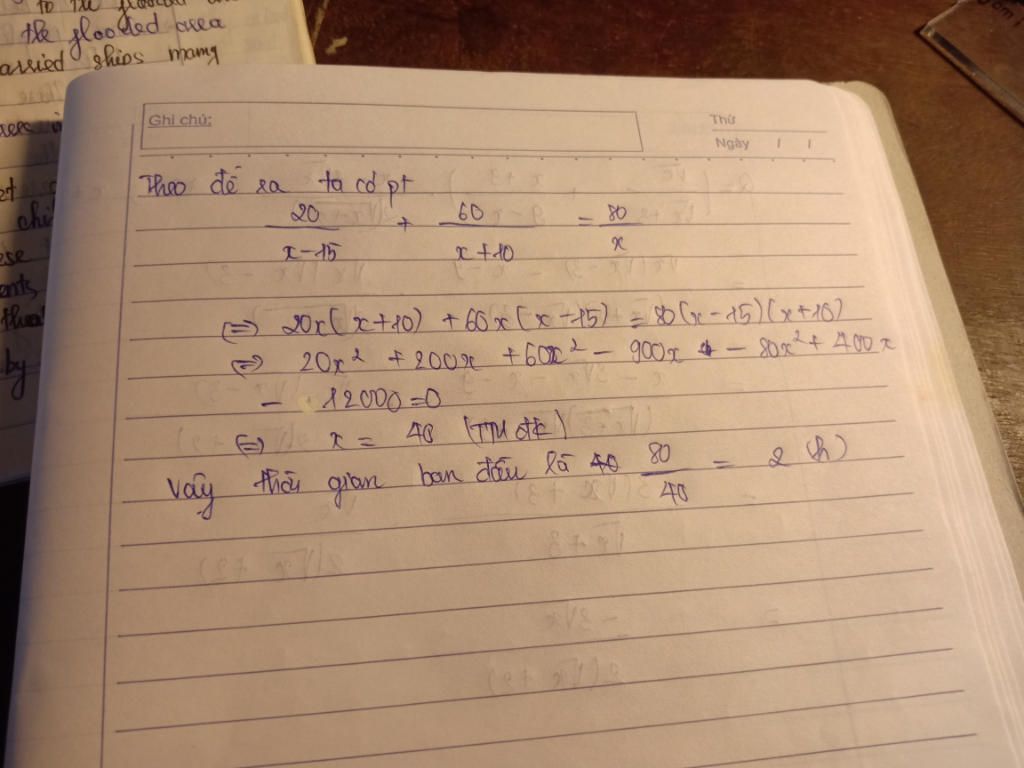 to the flooded
the flooded area
arried ships many
Ghi chú:
Thứ
Ngày / /
Theo đề ra ta có pt
20/(x-15) + 60/(x+10) = 80/x
(=) 20x(x+10) + 60x(x-15) = 80(x-15)(x+10)
(=) 20x² + 200x + 60x² - 900x - 80x² + 400x
- 12000 = 0
(=) x = 40 (TM đk)
Vậy thời gian ban đầu là 80/40 = 2 (h)
by